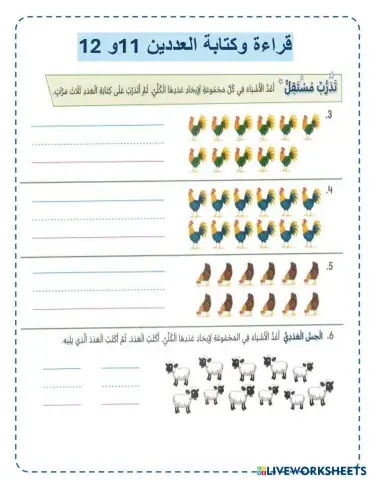 قراءة وكتابة العددين 11و 12
تَدَرُّبٌ مُسْتَقِلٌّ أَعُدُّ الْأَشْياءَ في كُلِّ مَجْموعَةٍ لِإيجادِ عَدَدِها الْكُلِّيِّ، ثُمَّ أَتَدَرَّبُ عَلى كِتابَةِ الْعَدَدِ ثَلاثَ مَرّاتٍ.
.3
.4
.5
.6 الْحِسُّ الْعَدَدِيُّ أَعُدُّ الْأَشْياءَ في الْمَجْموعَةِ لِإيجادِ عَدَدِها الْكُلِّيِّ. أَكْتُبُ الْعَدَدَ، ثُمَّ أَكْتُبُ الْعَدَدَ الَّذي يَليهِ.
LIVEWORKSHEETS